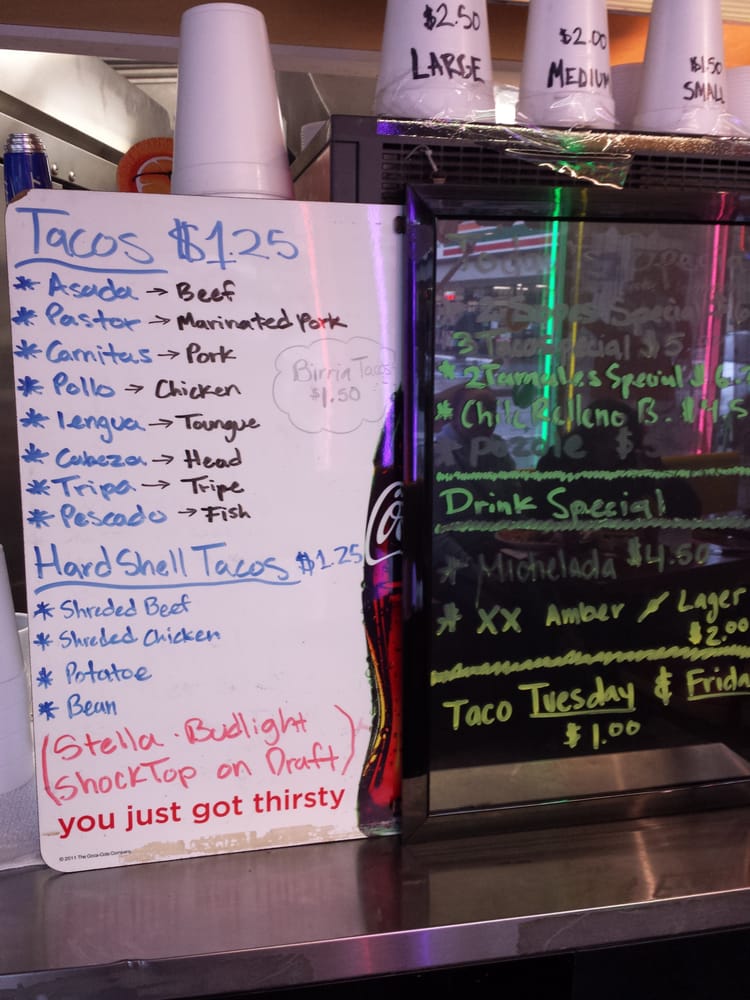 $2.50
LARGE
$2.00
MEDIUM
$1.50
SMALL
Tacos $1.25
* Asada → Beef
* Pastor → Marinated Pork
* Carnitas → Pork
* Pollo → Chicken
* Lengua → Toungue
* Cabeza → Head
* Tripa → Tripe
* Pescado → Fish
Birria Tacos
$1.50
Hard Shell Tacos $1.25
* Shreded Beef
* Shreded Chicken
* Potatoe
* Bean
(Stella · Budlight
ShockTop on Draft)
you just got thirsty
© 2011 The Coca-Cola Company
Special
3 Taco Special $5
* 2 Tamales Special $6
* Chile Relleno B. $4.5
* pozole $5
Drink Special
* Michelada $4.50
* XX Amber / Lager
$2.00
Taco Tuesday & Frida
$1.00